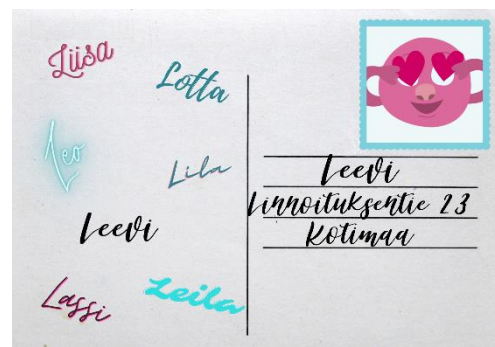 Liisa
Lotta
Leo
Lila
Leevi
Lassi
Leila
Leevi
Linnoituksentie 23
Kotimaa